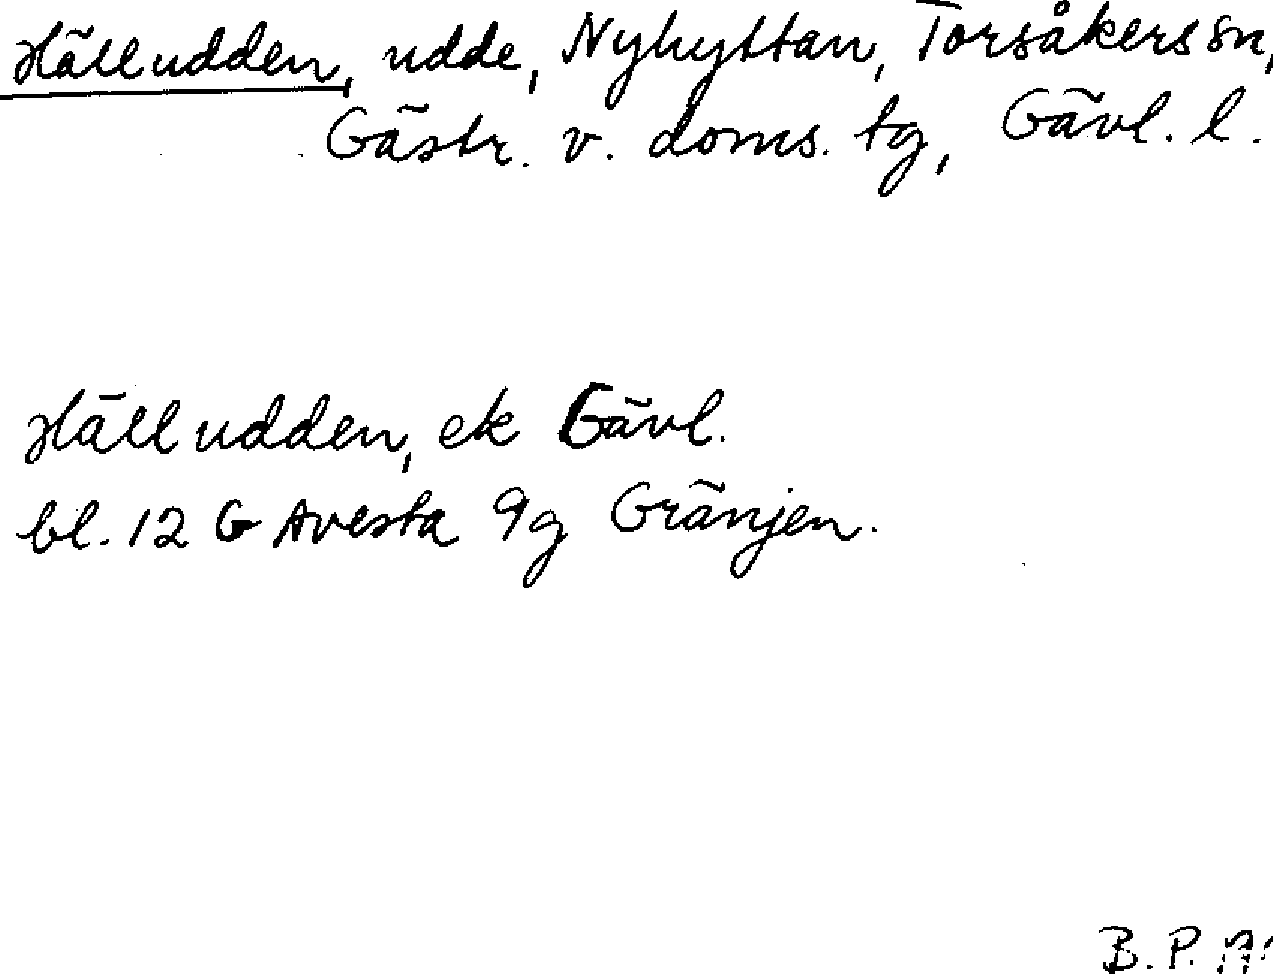 Hälludden, udde, Nyhyttan, Torsåkers sn,
Gästr. v. doms. tg, Gävl. l.
Hälludden, ek Gävl.
bl. 12 G Avesta 9g Gränjen.
B. P.